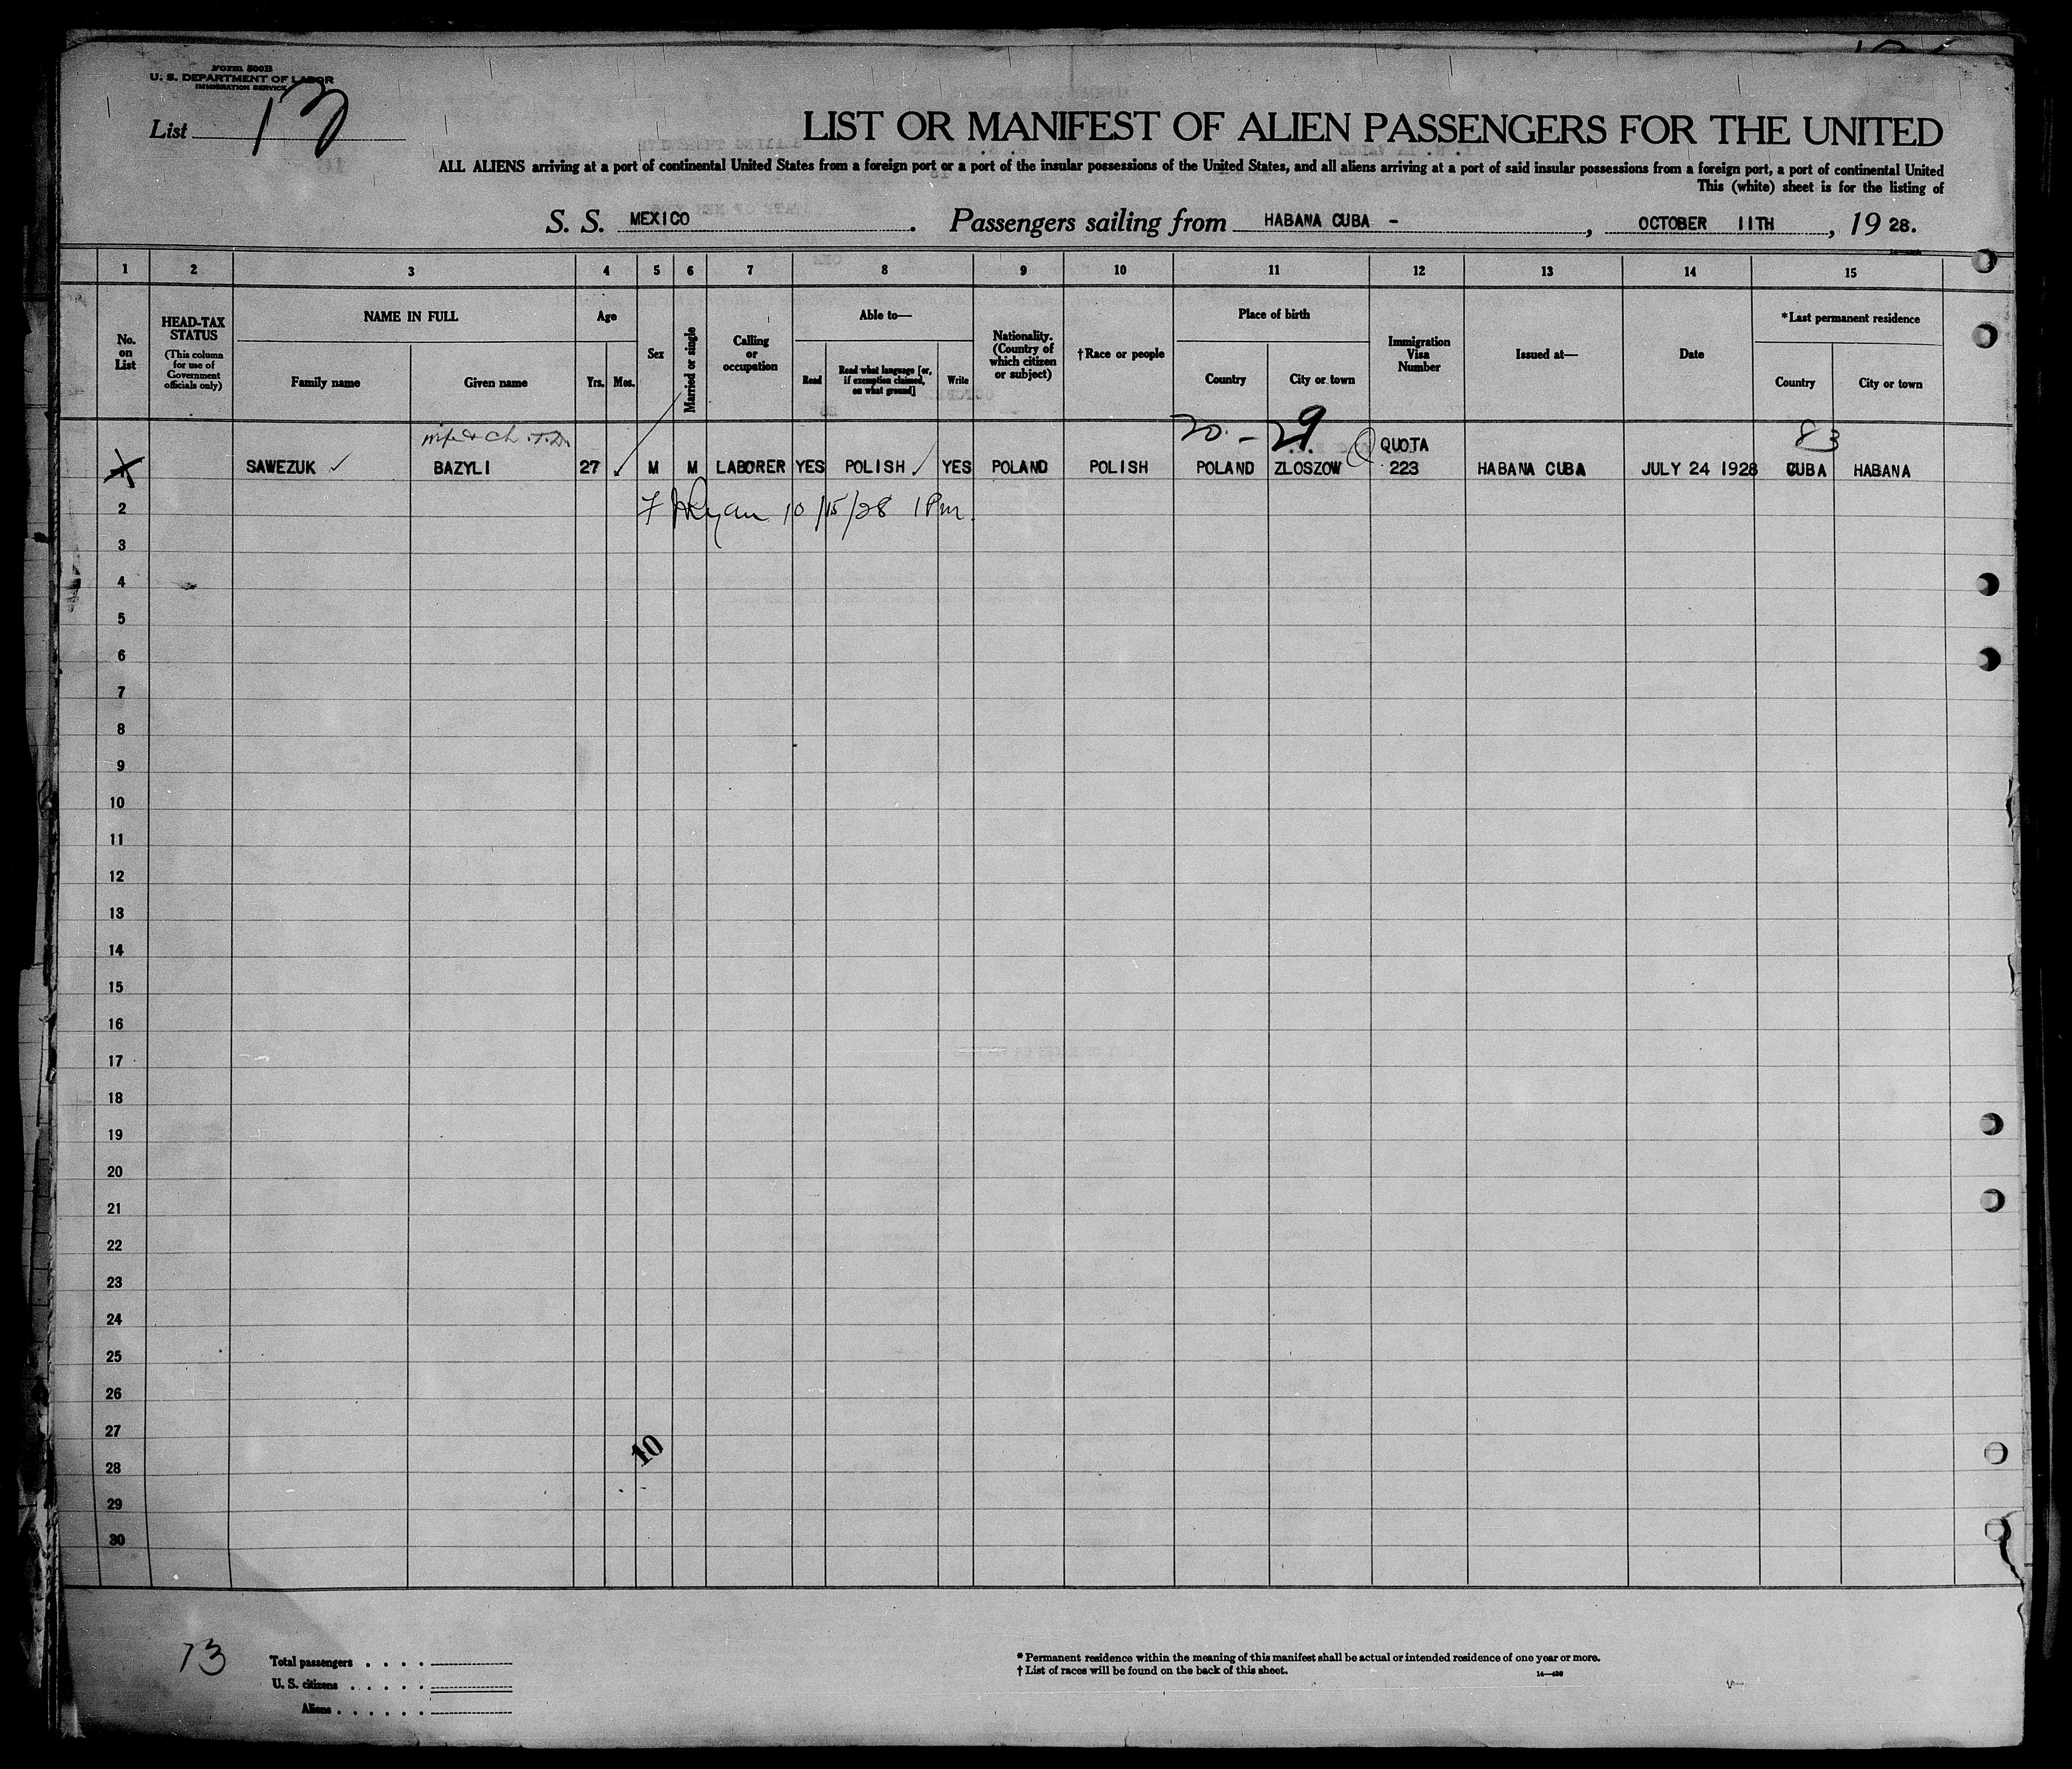 Form 500B
U. S. DEPARTMENT OF LABOR
IMMIGRATION SERVICE
List 13
LIST OR MANIFEST OF ALIEN PASSENGERS FOR THE UNITED
ALL ALIENS arriving at a port of continental United States from a foreign port or a port of the insular possessions of the United States, and all aliens arriving at a port of said insular possessions from a foreign port, a port of continental United
This (white) sheet is for the listing of
S. S. MEXICO . Passengers sailing from HABANA CUBA - , OCTOBER 11TH , 19 28.
1 2 3 4 5 6 7 8 9 10 11 12 13 14 15
No. on List
HEAD-TAX STATUS (This column for use of Government officials only)
NAME IN FULL
Family name Given name
Age
Yrs. Mos.
Sex
Married or single
Calling or occupation
Able to—
Read
Read what language [or, if exemption claimed, on what ground]
Write
Nationality. (Country of which citizen or subject)
†Race or people
Place of birth
Country City or town
Immigration Visa Number
Issued at—
Date
*Last permanent residence
Country City or town
wife & ch. 20 - 29 QUOTA 83
SAWEZUK ✓ BAZYLI 27 ✓ M M LABORER YES POLISH ✓ YES POLAND POLISH POLAND ZLOSZOW 223 HABANA CUBA JULY 24 1928 CUBA HABANA
2 Ryan 10/15/28 1 Pm.
3
4
5
6
7
8
9
10
11
12
13
14
15
16
17
18
19
20
21
22
23
24
25
26
27
10
28
29
30
13
Total passengers . . . .
U. S. citizens . . . . .
Aliens . . . . . .
* Permanent residence within the meaning of this manifest shall be actual or intended residence of one year or more.
† List of races will be found on the back of this sheet.